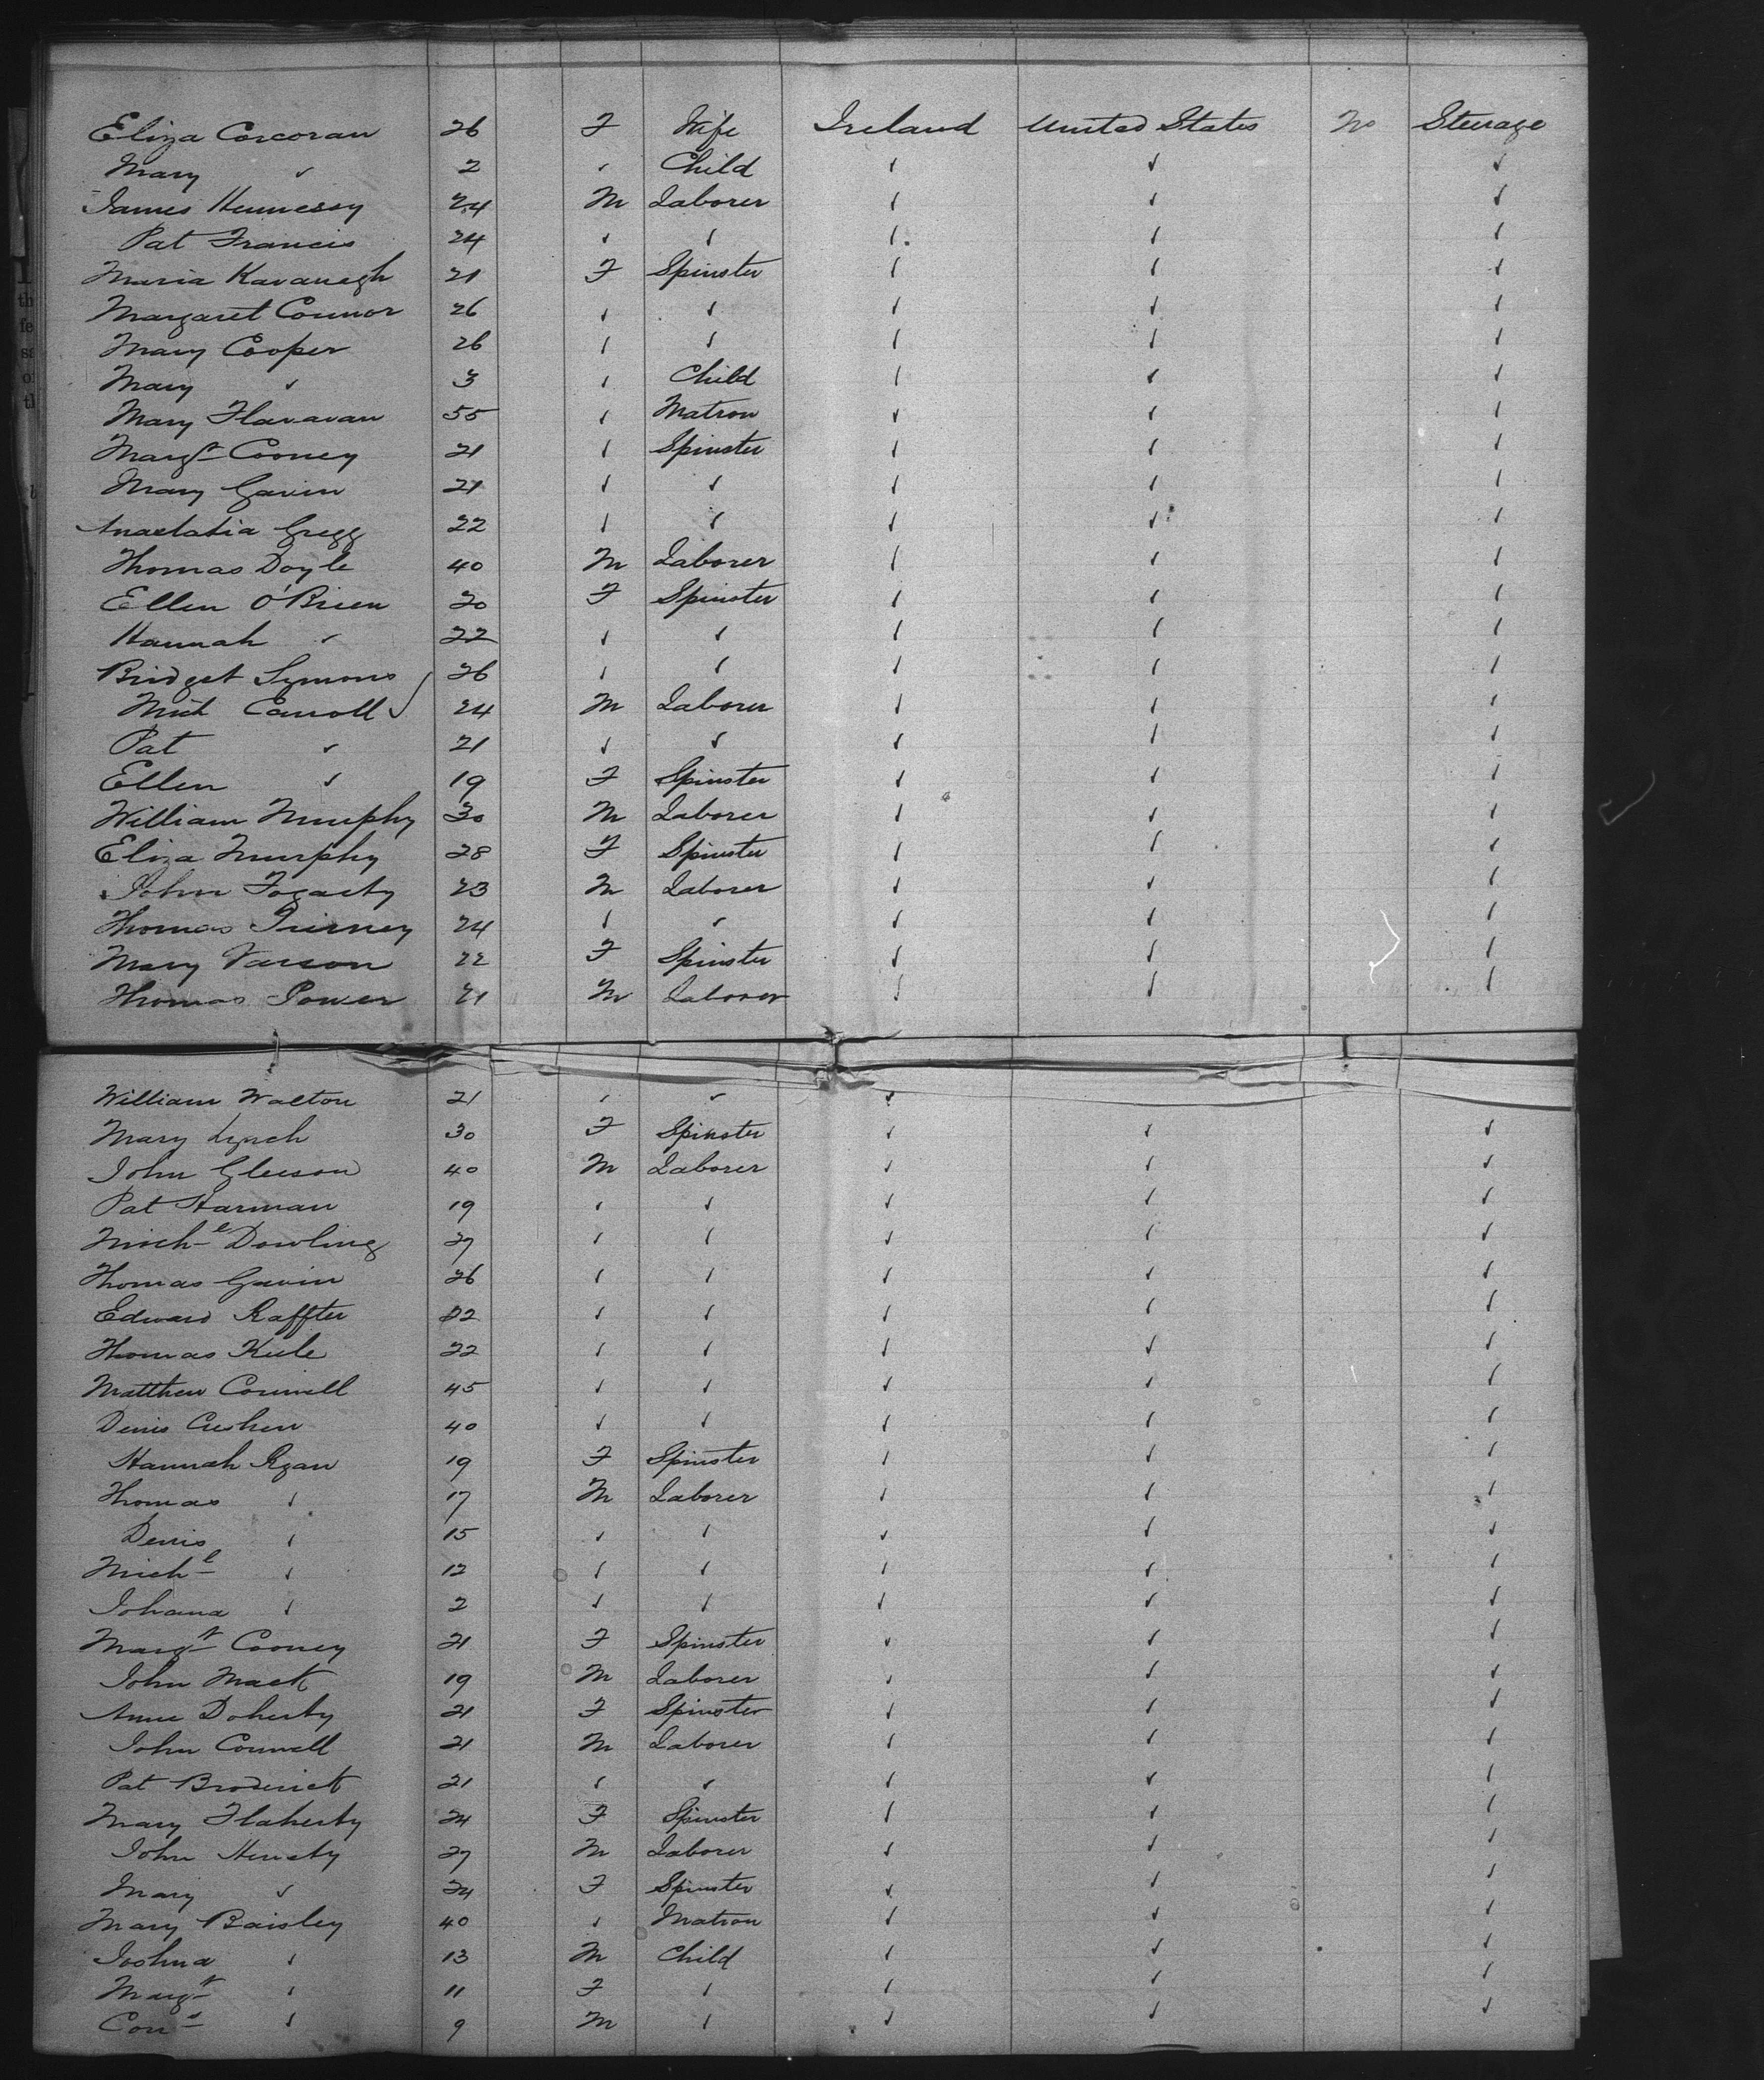 Eliza Corcoran 26 F Wife Ireland United States No Steerage
Mary " 2 " Child " " "
James Hennessy 24 M Laborer " " "
Pat Francis 24 " " " " "
Maria Kavanagh 21 F Spinster " " "
Margaret Connor 26 " " " " "
Mary Cooper 26 " " " " "
Mary " 3 " Child " " "
Mary Flanavan 55 " Matron " " "
Margt Cooney 21 " Spinster " " "
Mary Gavin 21 " " " " "
Anastatia Gregg 22 " " " " "
Thomas Doyle 40 M Laborer " " "
Ellen O'Brien 20 F Spinster " " "
Hannah " 22 " " " " "
Bridget Symons 26 " " " " "
Mich Carroll 24 M Laborer " " "
Pat " 21 " " " " "
Ellen " 19 F Spinster " " "
William Murphy 30 M Laborer " " "
Eliza Murphy 28 F Spinster " " "
John Fogarty 23 M Laborer " " "
Thomas 24 " " " " "
Mary 22 F Spinster " " "
Thomas Power 21 M Laborer " " "
William Walton 21 " " "
Mary Lynch 30 F Spinster " " "
John Gleeson 40 M Laborer " " "
Pat Harman 19 " " " " "
Michl Dowling 27 " " " " "
Thomas Gavin 26 " " " " "
Edward Raffter 22 " " " " "
Thomas Kiele 22 " " " " "
Matthew Connell 45 " " " " "
Denis Cushen 40 " " " " "
Hannah Ryan 19 F Spinster " " "
Thomas " 17 M Laborer " " "
Denis " 15 " " " " "
Michl " 12 " " " " "
Johana " 2 " " " " "
Margt Cooney 21 F Spinster " " "
John Mack 19 M Laborer " " "
Anne Doherty 21 F Spinster " " "
John Connell 21 M Laborer " " "
Pat Broderick 21 " " " " "
Mary Flaherty 24 F Spinster " " "
John 27 M Laborer " " "
Mary " 24 F Spinster " " "
Mary Baisley 40 " Matron " " "
Joshua " 13 M Child " " "
Margt " 11 F " " " "
Cons " 9 M " " " "